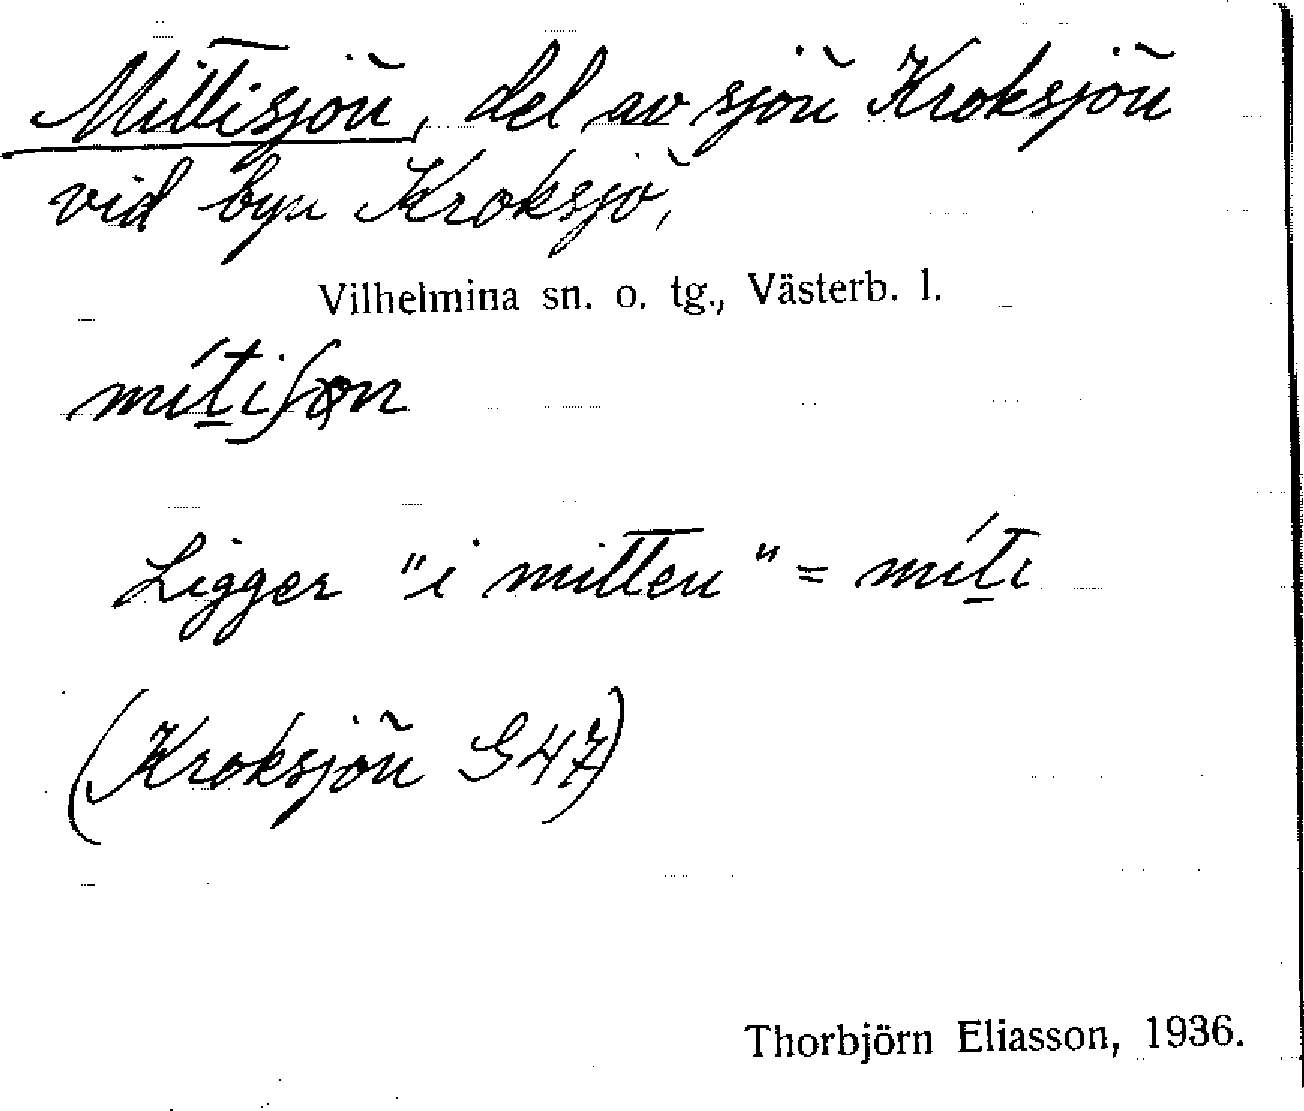 Mittisjön, del av sjön Kroksjön
vid byn Kroksjö,
Vilhelmina sn. o. tg., Västerb. l.
mít̲iʃøn
Ligger "i mitten" = mít̲i
(Kroksjön G47)
Thorbjörn Eliasson, 1936.